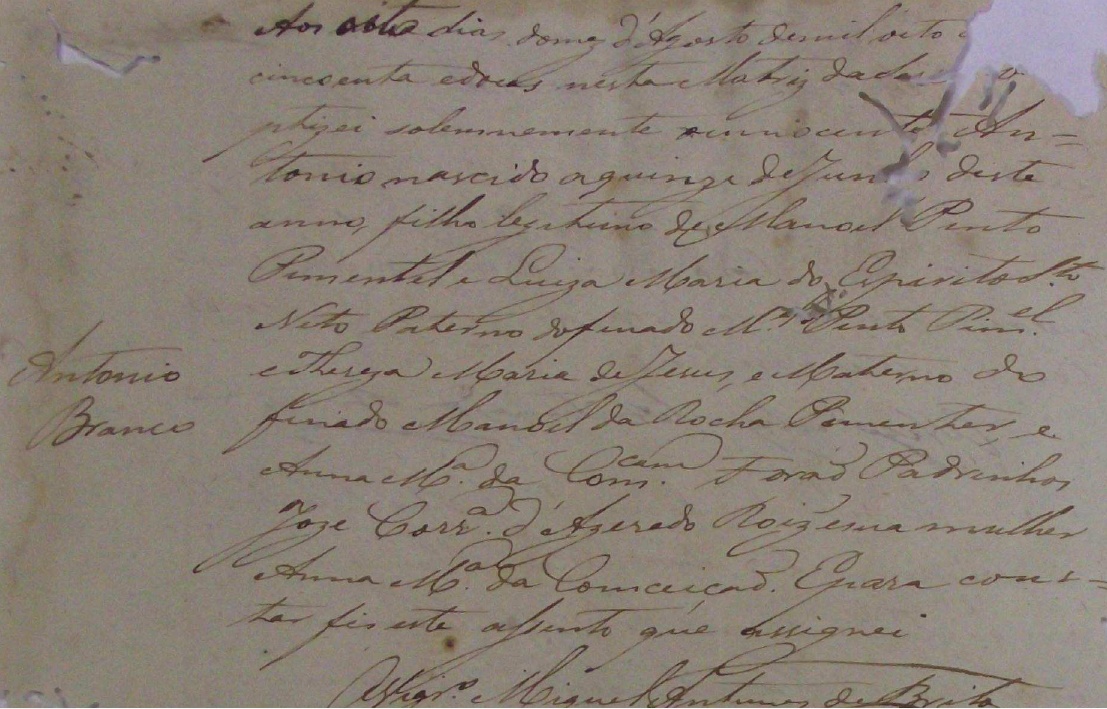 Aos oito dias do mez d'Agosto de mil oito
cincoenta e dous nesta Matriz da
ptizei solemnemente o innocente An=
tonio nascido a quinze de Junho deste
anno, filho legitimo de Manoel Pinto
Pimentel e Luiza Maria do Espirito Sto
Neto Paterno do finado Mel Pinto Pimel
e Thereza Maria de Jesus, e Materno do
finado Manoel da Rocha Pimentel, e
Antonio
Branco
Anna Ma. da Comcam. Forão Padrinhos
Joze Corra. d'Azeredo Roiz e sua mulher
Anna Ma. da Comceição. E para cons=
tar fis este assento que assignei
O Vigro. Miguel Antunes de Brito